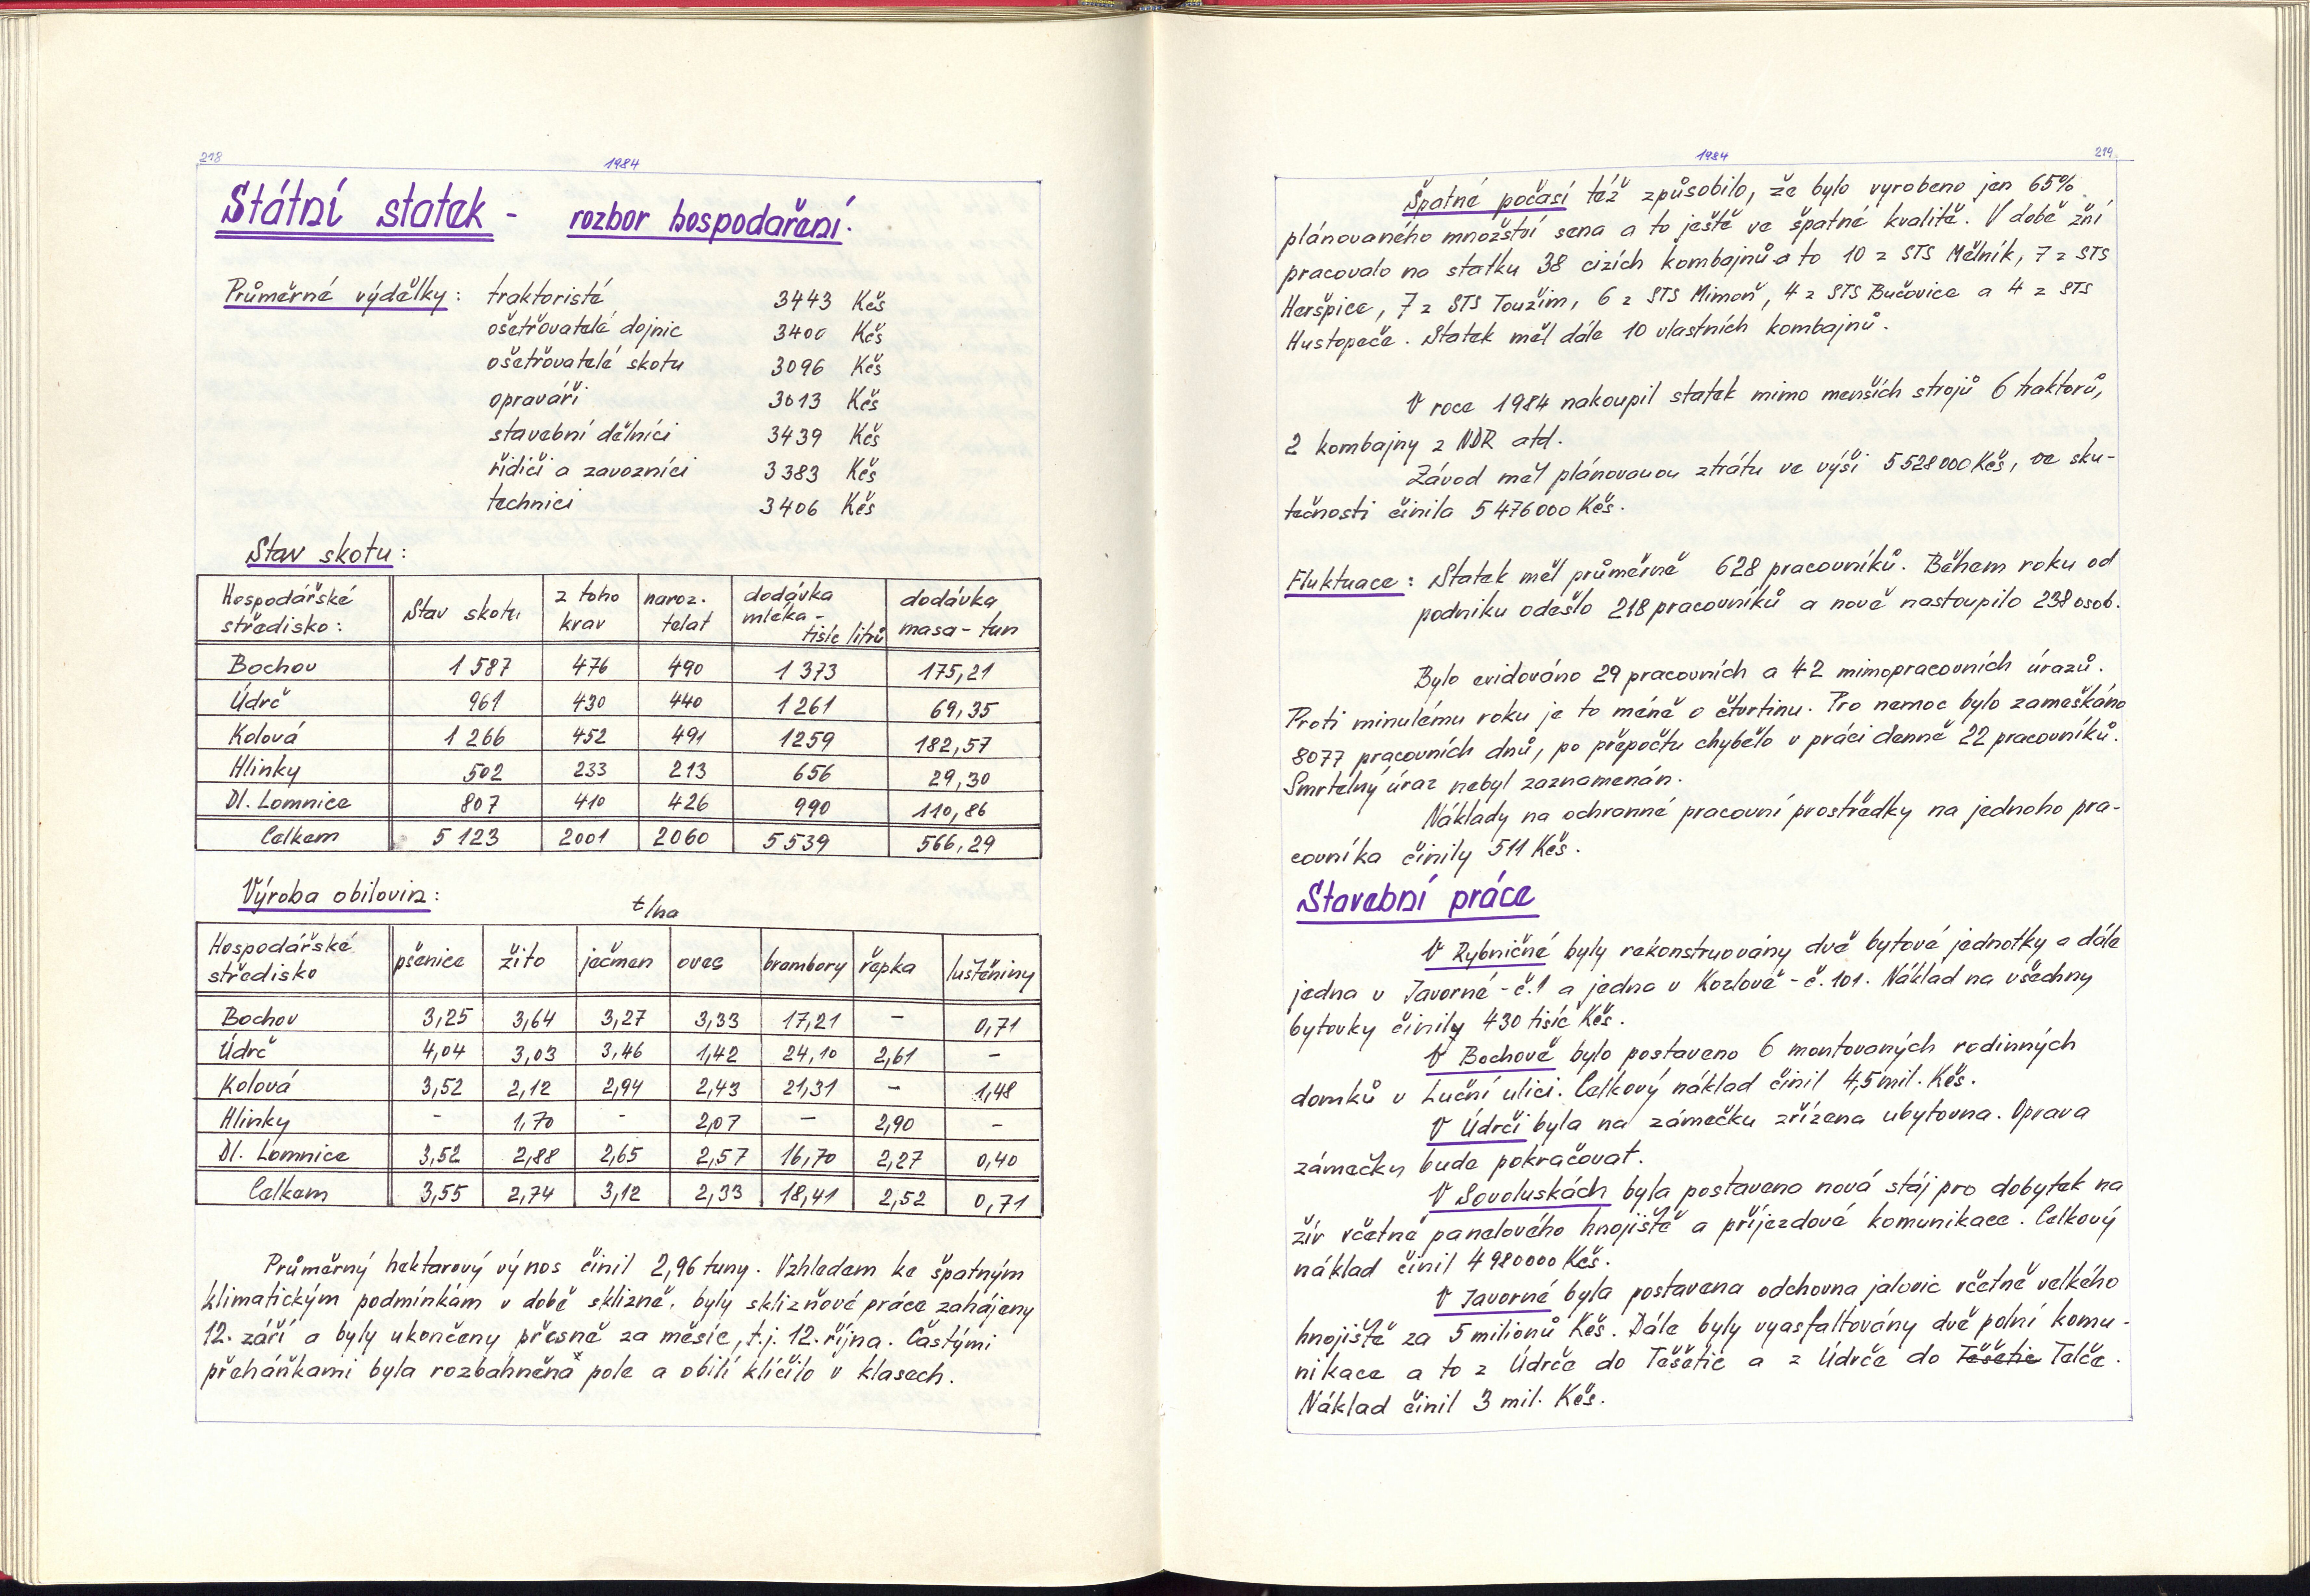 218
1984
Státní statek - rozbor hospodaření.
Průměrné výdělky: traktoristé 3443 Kčs
ošetřovatelé dojnic 3400 Kčs
ošetřovatelé skotu 3096 Kčs
opraváři 3013 Kčs
stavební dělníci 3439 Kčs
řidiči a závozníci 3383 Kčs
technici 3406 Kčs
Stav skotu:
Hospodářské středisko: Stav skotu z toho krav naroz. telat dodávka mléka - tisíc litrů dodávka masa - tun
Bochov 1 587 476 490 1 373 175,21
Údrč 961 430 440 1 261 69,35
Kolová 1 266 452 491 1259 182,57
Hlinky 502 233 213 656 29,30
Dl. Lomnice 807 410 426 990 110,86
Celkem 5 123 2001 2060 5 539 566,29
Výroba obilovin: t/ha
Hospodářské středisko pšenice žito ječmen oves brambory řepka luštěniny
Bochov 3,25 3,64 3,27 3,33 17,21 - 0,71
Údrč 4,04 3,03 3,46 1,42 24,10 2,61 -
Kolová 3,52 2,12 2,94 2,43 21,31 - 1,48
Hlinky - 1,70 - 2,07 - 2,90 -
Dl. Lomnice 3,52 2,88 2,65 2,57 16,70 2,27 0,40
Celkem 3,55 2,74 3,12 2,33 18,41 2,52 0,71
Průměrný hektarový výnos činil 2,96 tuny. Vzhledem ke špatným
klimatickým podmínkám v době sklizně. byly sklizňové práce zahájeny
12. září a byly ukončeny přesně za měsíc, t.j. 12. října. Častými
přeháňkami byla rozbahněná pole a obilí klíčilo v klasech.
1984
219
Špatné počasí též způsobilo, že bylo vyrobeno jen 65%
plánovaného množství sena a to ještě ve špatné kvalitě. V době žní
pracovalo na statku 38 cizích kombajnů a to 10 z STS Mělník, 7 z STS
Heršpice, 7 z STS Toužim, 6 z STS Mimoň, 4 z STS Bučovice a 4 z STS
Hustopeče. Statek měl dále 10 vlastních kombajnů.
V roce 1984 nakoupil statek mimo menších strojů 6 traktorů,
2 kombajny z NDR atd.
Závod měl plánovanou ztrátu ve výši 5 528 000 Kčs, ve sku-
tečnosti činila 5 476 000 Kčs.
Fluktuace: Statek měl průměrně 628 pracovníků. Během roku od
podniku odešlo 218 pracovníků a nově nastoupilo 238 osob.
Bylo evidováno 29 pracovních a 42 mimopracovních úrazů.
Proti minulému roku je to méně o čtvrtinu. Pro nemoc bylo zameškáno
8077 pracovních dnů, po přepočtu chybělo v práci denně 22 pracovníků.
Smrtelný úraz nebyl zaznamenán.
Náklady na ochranné pracovní prostředky na jednoho pra-
covníka činily 511 Kčs.
Stavební práce
V Rybničné byly rekonstruovány dvě bytové jednotky a dále
jedna v Javorné - č. 1 a jedna v Kozlově - č. 101. Náklad na všechny
bytovky činily 430 tisíc Kčs.
V Bochově bylo postaveno 6 montovaných rodinných
domků v Luční ulici. Celkový náklad činil 4,5 mil. Kčs.
V Údrči byla na zámečku zřízena ubytovna. Oprava
zámečku bude pokračovat.
V Sovoluskách byla postavena nová stáj pro dobytek na
žír včetně panelového hnojiště a příjezdové komunikace. Celkový
náklad činil 4 980000 Kčs.
V Javorné byla postavena odchovna jalovic včetně velkého
hnojiště za 5 milionů Kčs. Dále byly vyasfaltovány dvě polní komu-
nikace a to z Údrče do Těšetic a z Údrče do Těšetic Telče.
Náklad činil 3 mil. Kčs.